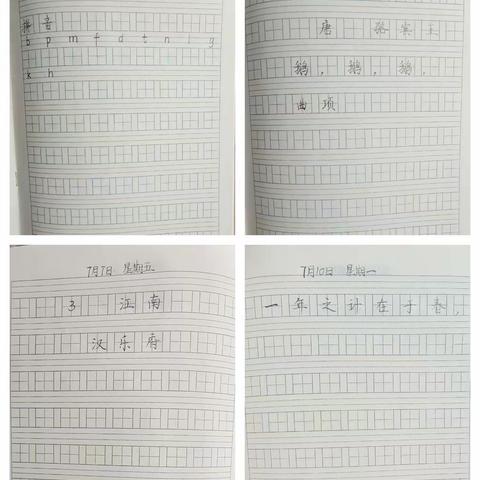 拼音
b p m f d t n l g
k h
唐 骆宾王
鹅，鹅，鹅，
曲项
7月7日 星期五
3 江南
汉乐府
7月10日 星期一
一年之计在于春，